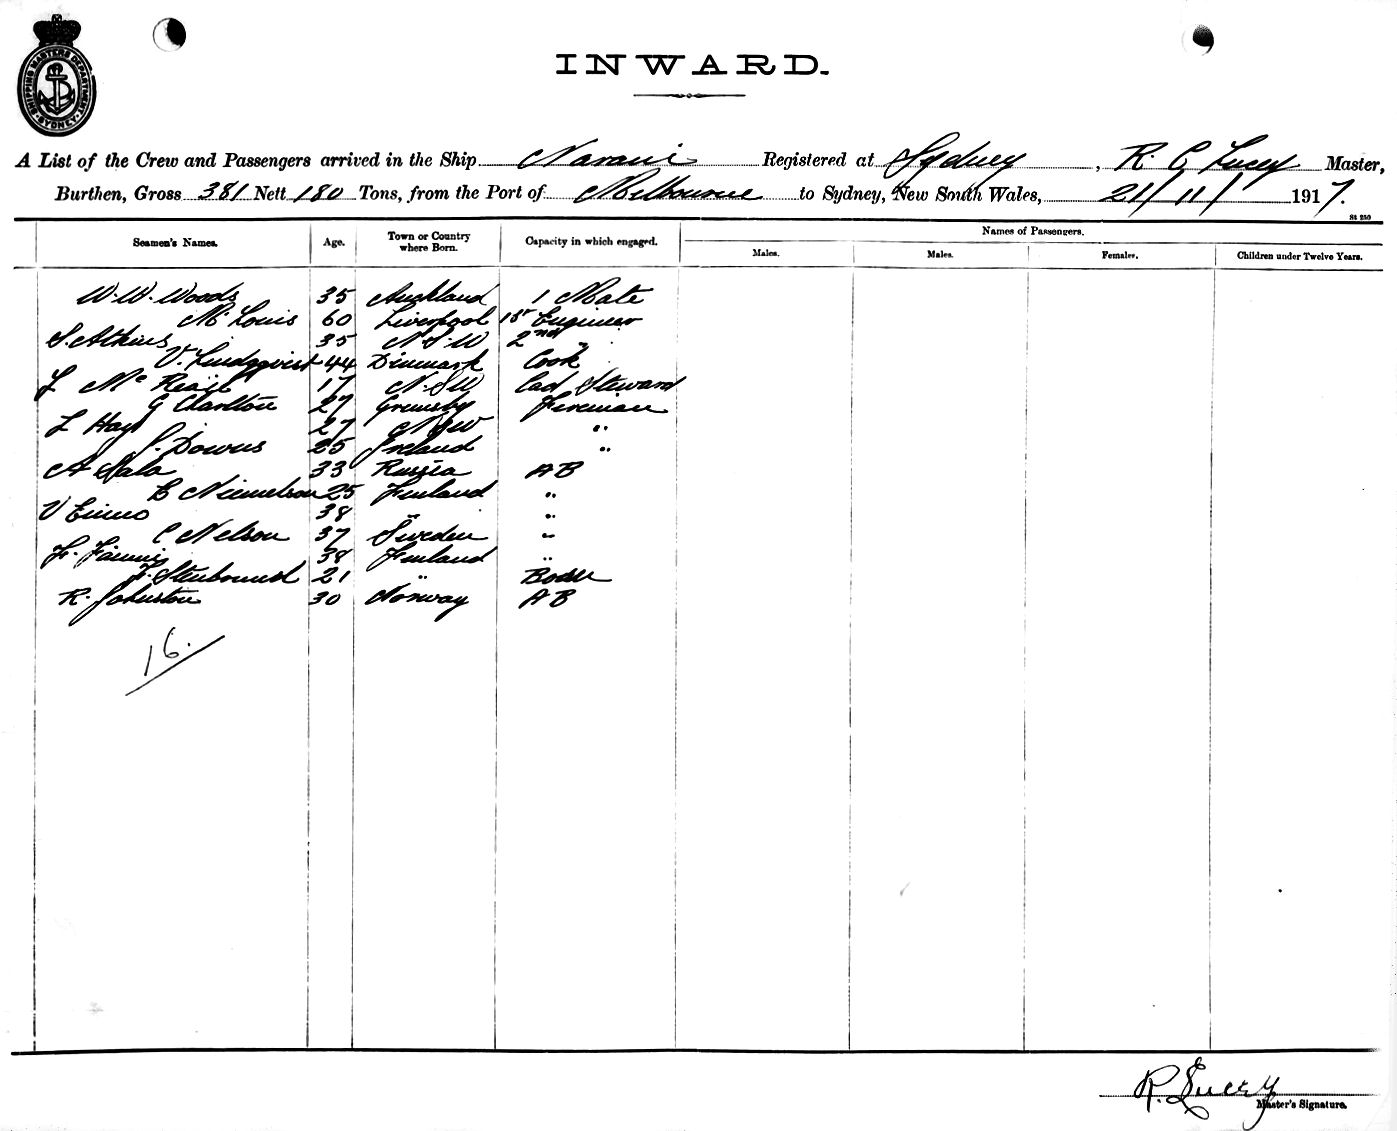 SHIPPING MASTERS DEPARTMENT SYDNEY
INWARD.
A List of the Crew and Passengers arrived in the Ship Narani Registered at Sydney, R. C Lucey Master,
Burthen, Gross 381 Nett 180 Tons, from the Port of Melbourne to Sydney, New South Wales, 21/11/1917.
Names of Passengers.
Seamen's Names. Age. Town or Country where Born. Capacity in which engaged. Males. Males. Females. Children under Twelve Years.
W. W. Woods 35 Auckland 1 Mate
Mc Louis 60 Liverpool 1st Engineer
S. Atkins 35 N S W 2nd "
V. Lindqvist 44 Dinmark Cook
17 N. SW Steward
G Charlton 27 Gremsby Fireman
L Hay 27 N S W "
Downs 25 Ireland "
A Sala 33 Russia AB
E Niemelson 25 Finland "
V Eimo 38 " "
C Nelson 37 Sweden "
38 Finland "
21 "
R. Johnston 30 Norway AB
16.
R. Lucey
Master's Signature.